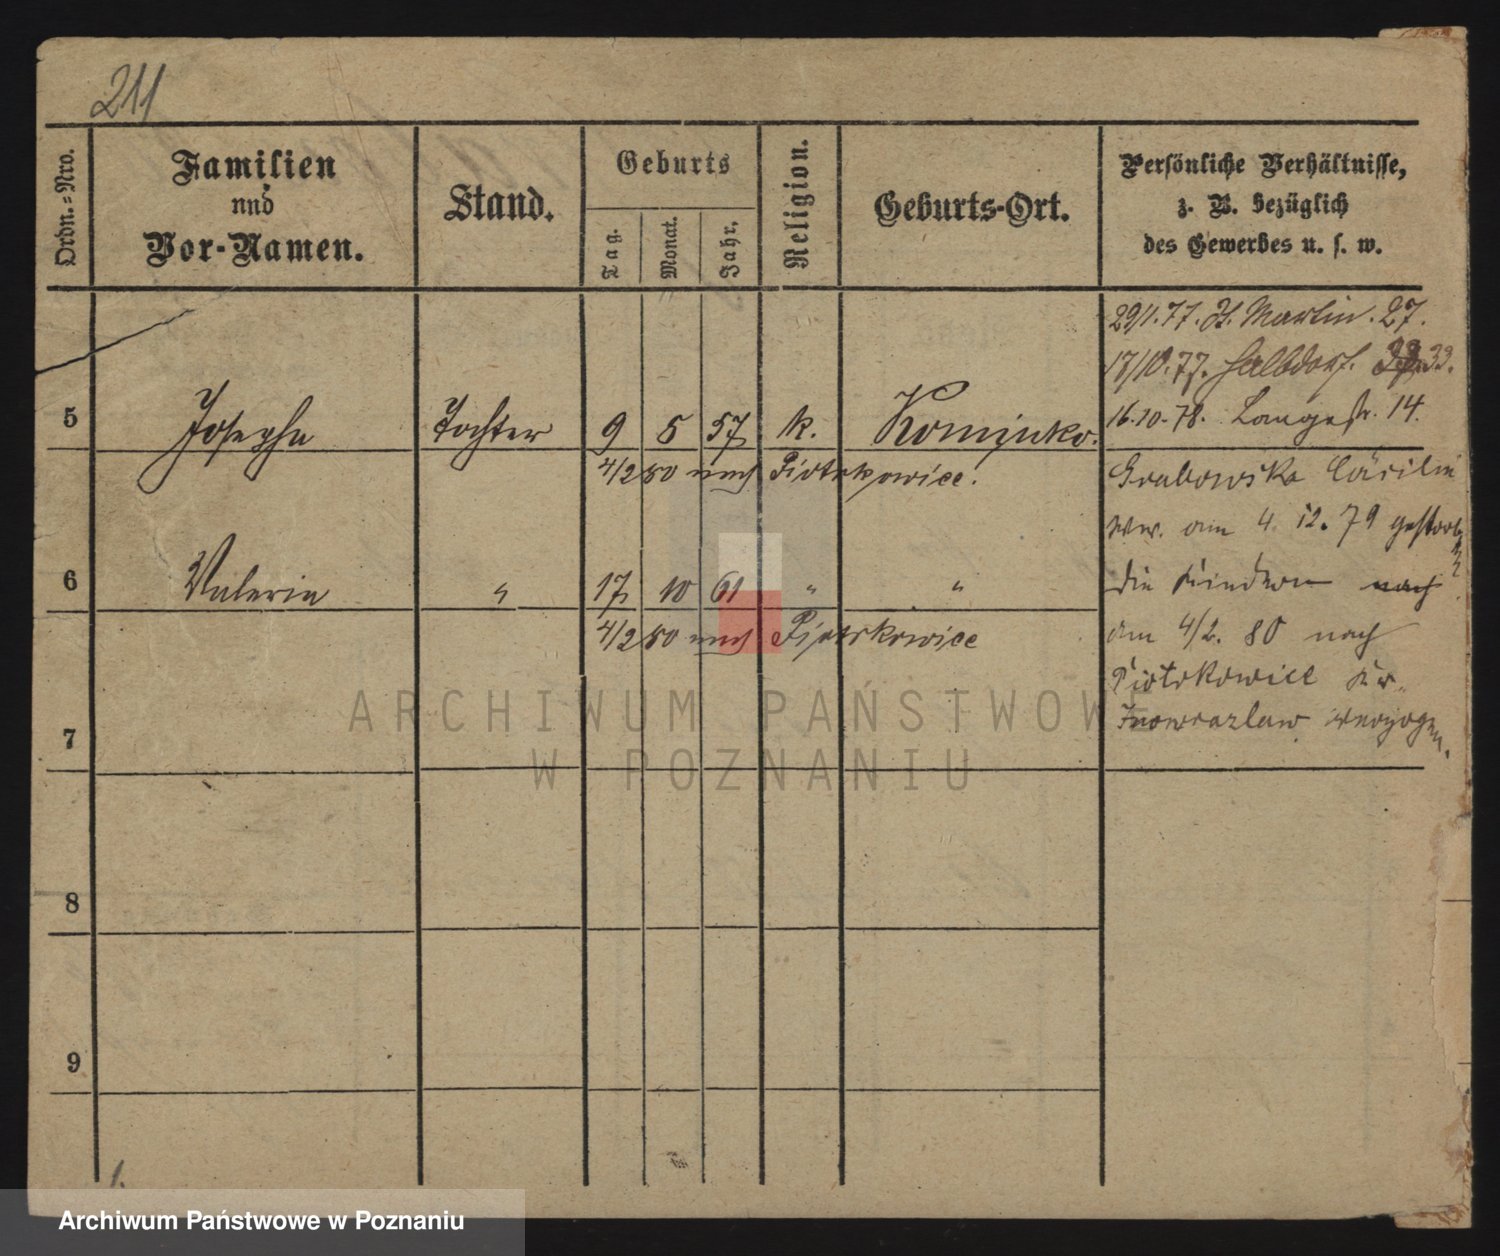 211
Ordn.-Nro.
Familien
und
Vor-Namen.
Stand.
Geburts
Tag.
Monat.
Jahr.
Religion.
Geburts-Ort.
Persönliche Verhältnisse,
z. B. bezüglich
des Gewerbes u. s. w.
29/1. 77. St. Martin. 27.
17/10. 77. Halbdorf. 33.
16.10.78. Langestr. 14.
5 Josepha Tochter 9 5 57 k.
4/2 80 nach Piotrkowice.
Grabowska Cäcilie
Ww. am 4. 12. 79 gestorben
6 Valeria " 17 10 61 " "
die Kinder nach
4/2 80 nach Piotrkowice
am 4/2. 80 nach
Piotrkowice Kr.
Inowrazlaw verzogen.
7
8
9
ARCHIWUM PAŃSTWOWE
W POZNANIU
Archiwum Państwowe w Poznaniu